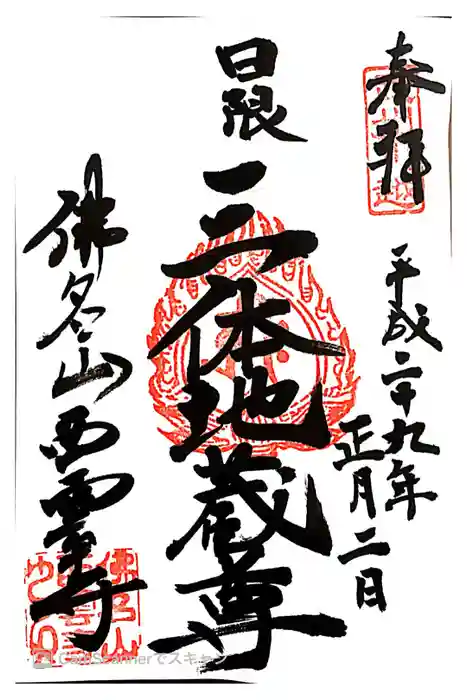 奉拝
平成二十九年
正月二日
日限
三体地蔵尊
佛名山西雲寺
CamScannerでスキャン